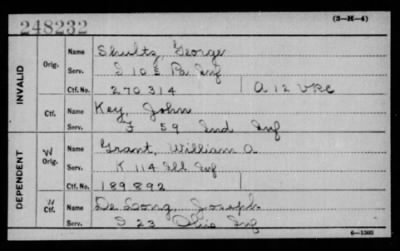 248232
(3-H-4)
INVALID
Orig. Name Shultz, George
Serv. D 105 Pa Inf
Ctf. No. 270314 A 12 VRC
Ctf. Name Key, John
Serv. F 59 Ind Inf
DEPENDENT
W Orig. Name Grant, William A
Serv. K 114 Ill Inf
Ctf. No. 189892
Ctf. Name De Long, Joseph
Serv. D 23 Ohio Inf